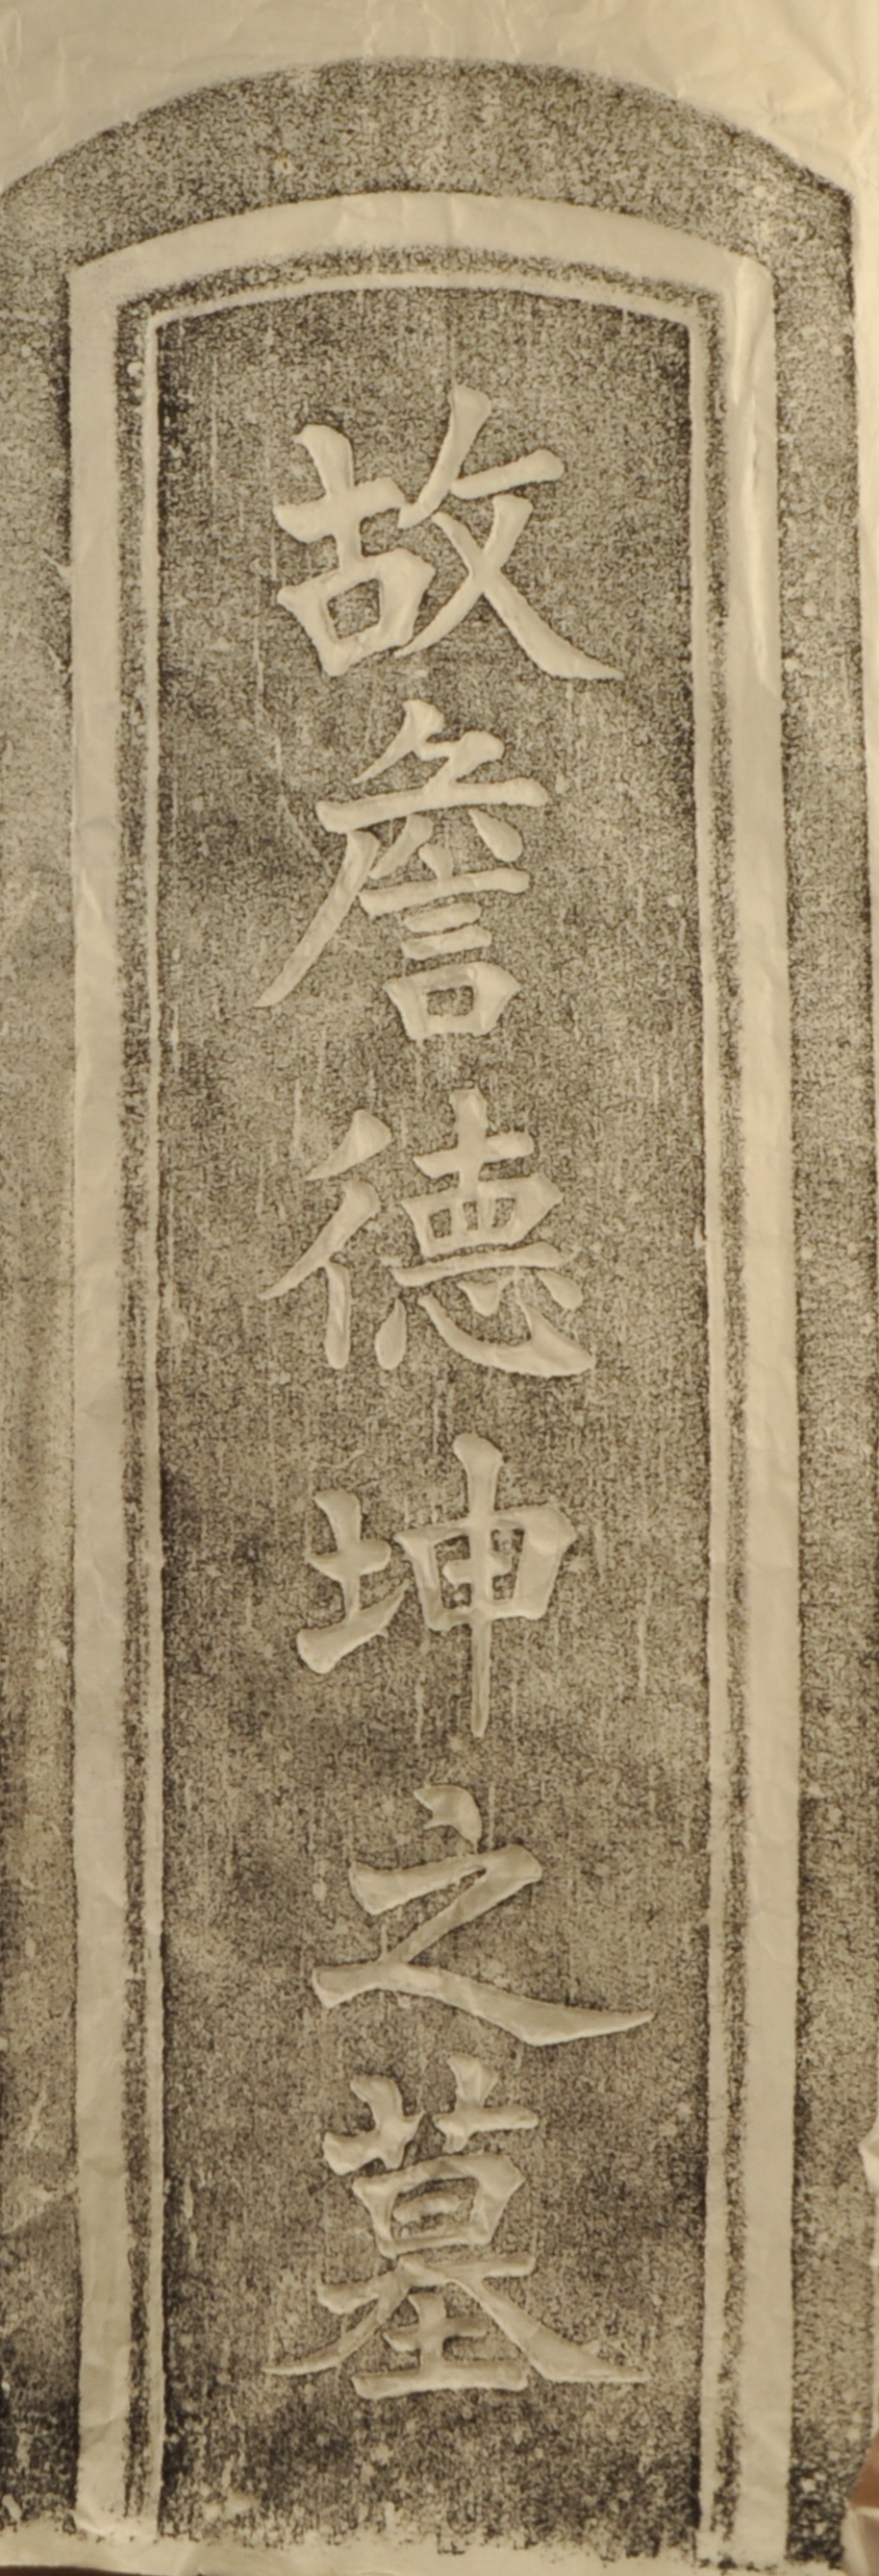 故詹徳坤之墓